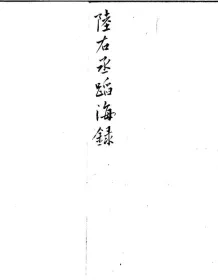 陸右丞蹈海録